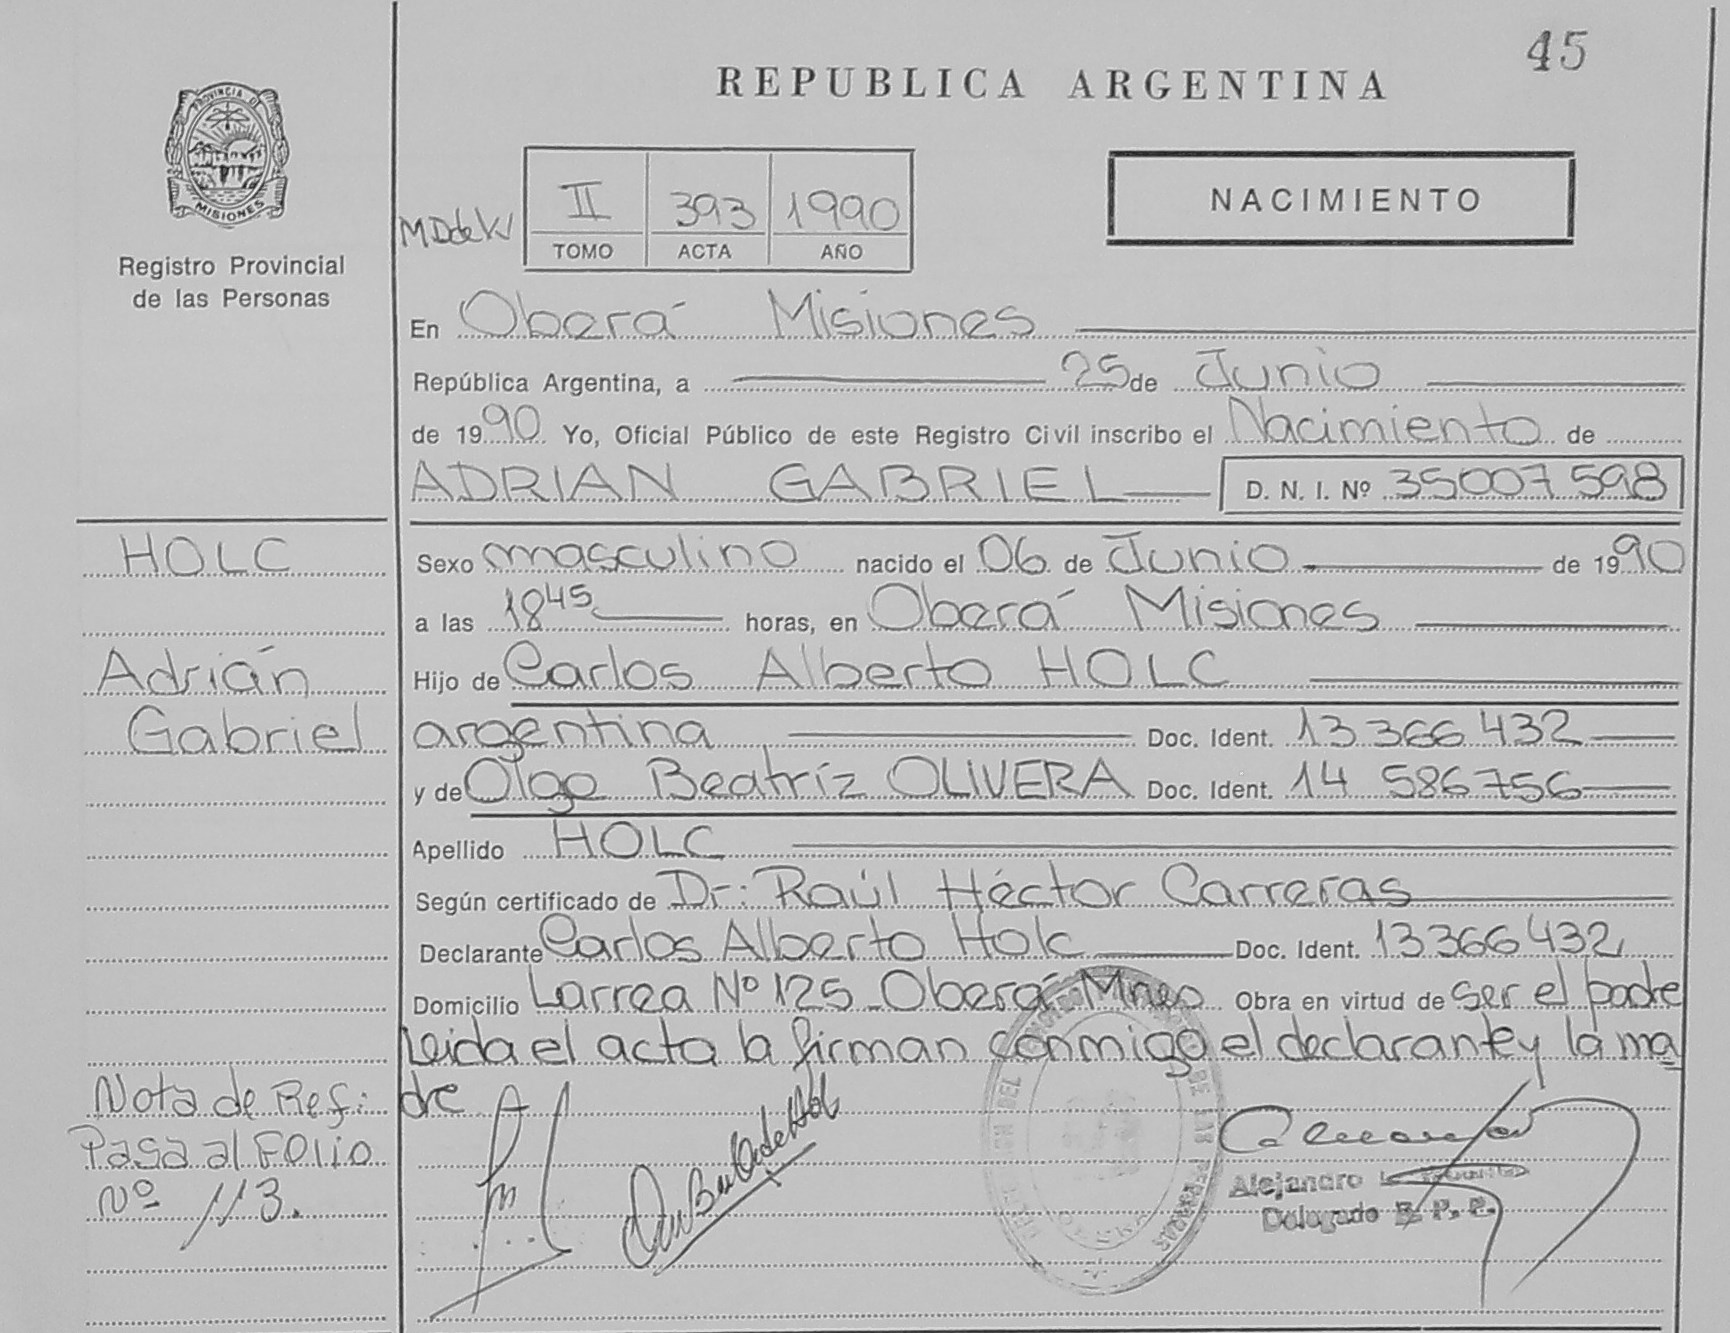 45
REPUBLICA ARGENTINA
PROVINCIA DE
MISIONES
Registro Provincial
de las Personas
II 393 1990
TOMO ACTA AÑO
NACIMIENTO
En Oberá Misiones
República Argentina, a 25 de Junio
de 1990 Yo, Oficial Público de este Registro Civil inscribo el Nacimiento de
ADRIAN GABRIEL D. N. I. Nº 35007598
HOLC
Adrián
Gabriel
Sexo masculino nacido el 06 de Junio de 1990
a las 18 45 horas, en Oberá Misiones
Hijo de Carlos Alberto HOLC
argentina Doc. Ident. 13 366 432
y de Olga Beatríz OLIVERA Doc. Ident. 14 586756
Apellido HOLC
Según certificado de Dr: Raúl Héctor Carreras
Declarante Carlos Alberto Holc Doc. Ident. 13366432
Domicilio Larrea Nº 125 - Oberá Mnes Obra en virtud de ser el padre
Leida el acta la firman conmigo el declarante y la ma
dre
Nota de Ref:
Pasa al Folio
Nº 113.
Alejandro
Delegado R. P. P.